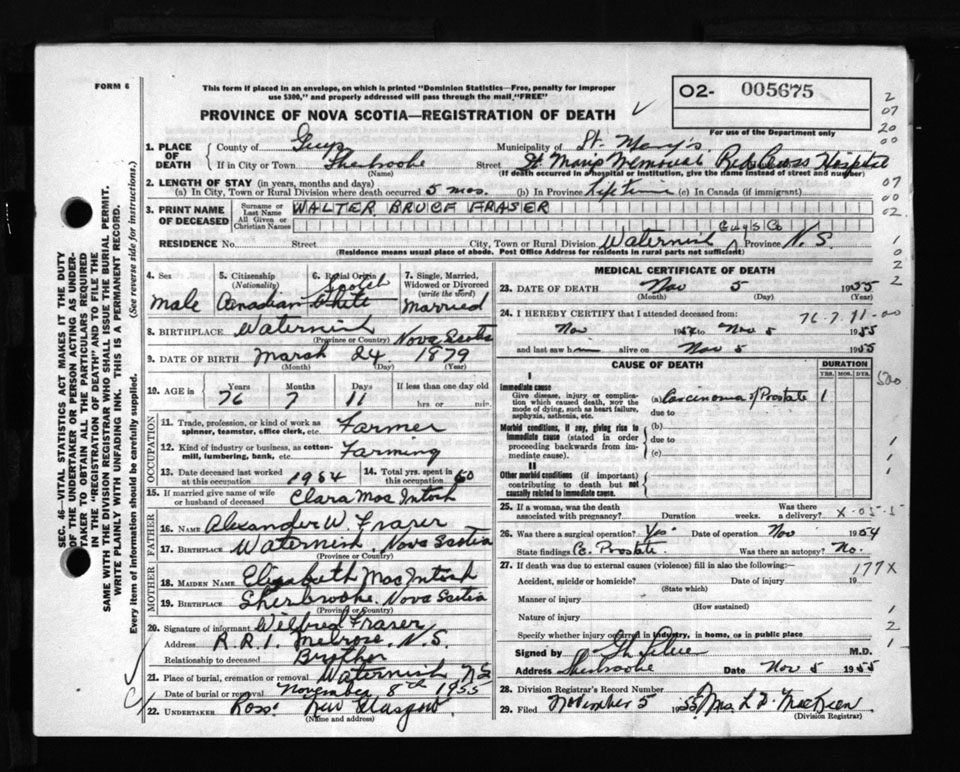 FORM 6
This form if placed in an envelope, on which is printed "Dominion Statistics—Free, penalty for improper
use $300," and properly addressed will pass through the mail "FREE"
PROVINCE OF NOVA SCOTIA—REGISTRATION OF DEATH
O2- 005675
For use of the Department only
2
07
20
00
07
00
02
1
0
2
2
SEC. 46—VITAL STATISTICS ACT MAKES IT THE DUTY
OF THE UNDERTAKER OR PERSON ACTING AS UNDER-
TAKER TO OBTAIN ALL THE PARTICULARS REQUIRED
IN THE "REGISTRATION OF DEATH" AND TO FILE THE
SAME WITH THE DIVISION REGISTRAR WHO SHALL ISSUE THE BURIAL PERMIT.
WRITE PLAINLY WITH UNFADING INK. THIS IS A PERMANENT RECORD.
Every item of information should be carefully supplied. (See reverse side for instructions.)
1. PLACE OF DEATH County of Guys Municipality of St. Mary's
If in City or Town Sherbrooke Street St Marys Memorial Red Cross Hospital
(Name) (If death occurred in a hospital or institution, give the name instead of street and number)
2. LENGTH OF STAY (in years, months and days)
(a) In City, Town or Rural Division where death occurred 5 mos. (b) In Province Life Time (c) In Canada (if immigrant)
3. PRINT NAME OF DECEASED Surname or Last Name WALTER BRUCE FRASER
All Given or Christian Names
Guys Co
RESIDENCE No. Street City, Town or Rural Division Waternish Province N. S.
(Residence means usual place of abode. Post Office Address for residents in rural parts not sufficient)
4. Sex male
5. Citizenship (Nationality) Canadian
6. Racial Origin Scotch White
7. Single, Married, Widowed or Divorced (write the word) Married
8. BIRTHPLACE Waternish Nova Scotia
(Province or Country)
9. DATE OF BIRTH March 24 1879
(Month) (Day) (Year)
10. AGE in Years Months Days If less than one day old
76 7 11 hrs. or min.
OCCUPATION
11. Trade, profession, or kind of work as spinner, teamster, office clerk, etc. Farmer
12. Kind of industry or business, as cotton-mill, lumbering, bank, etc. Farming
13. Date deceased last worked at this occupation 1954
14. Total yrs. spent in this occupation 60
15. If married give name of wife or husband of deceased Clara Mac Intosh
FATHER
16. NAME Alexander W. Fraser
17. BIRTHPLACE Waternish, Nova Scotia
(Province or Country)
MOTHER
18. MAIDEN NAME Elizabeth MacIntosh
19. BIRTHPLACE Sherbrooke, Nova Scotia
(Province or Country)
20. Signature of informant Wilfred Fraser
Address R.R.1. Melrose N.S.
Relationship to deceased Brother
21. Place of burial, cremation or removal Waternish NS
Date of burial or removal November 8th 1955
22. UNDERTAKER Ross New Glasgow.
(Name and address)
MEDICAL CERTIFICATE OF DEATH
23. DATE OF DEATH Nov 5 1955
(Month) (Day) (Year)
24. I HEREBY CERTIFY that I attended deceased from:
76-7-11-00
Nov 1954 to Nov 5 1955
and last saw him alive on Nov 5 1955
CAUSE OF DEATH
DURATION
YRS. MOS. DYS.
500
I
Immediate cause
Give disease, injury or complication which caused death, not the mode of dying, such as heart failure, asphyxia, asthenia, etc.
(a) Carcinoma of Prostate 1
due to
Morbid conditions, if any, giving rise to immediate cause (stated in order proceeding backwards from immediate cause).
(b)
due to
(c)
II
Other morbid conditions (if important) contributing to death but not causally related to immediate cause.
25. If a woman, was the death associated with pregnancy? Duration weeks. Was there a delivery?
X-05-5
26. Was there a surgical operation? Yes Date of operation Nov 1954
State findings Ca. Prostate. Was there an autopsy? No.
27. If death was due to external causes (violence) fill in also the following:—
177X
Accident, suicide or homicide? Date of injury 19
(State which)
Manner of injury
(How sustained)
Nature of injury
Specify whether injury occurred in industry, in home, or in public place
Signed by M.D.
Address Sherbrooke Date Nov 5 1955
28. Division Registrar's Record Number
29. Filed November 5 1955 Mrs. L D. MacKeen
(Division Registrar)